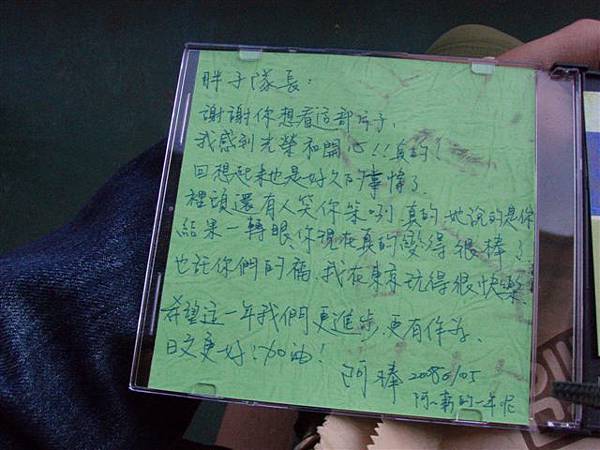 胖子隊長：
謝謝你想看這部片子、
我感到光榮和開心!!真的!
回想起來也是好久的事情了
裡頭還有人笑你笨咧 真的 她說的是你
結果一轉眼你現在真的變得很棒了
也託你們的福、我在東京玩得很快樂
希望這一年我們更進步、更有作為、
日文更好!加油!
阿棒 20080105
阿~新的一年呢